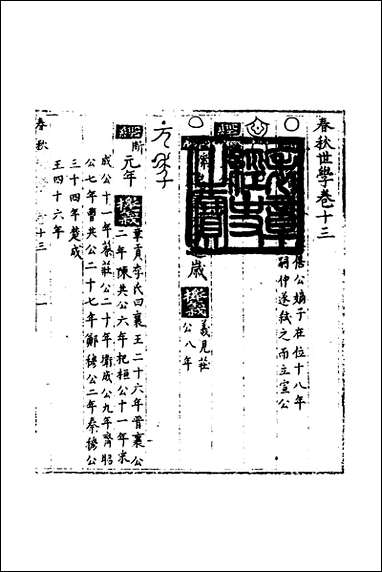 春秋世學卷十三
僖公嫡子在位十八年
嗣仲遂弑之而立宣公
表章
經史
之寶
歲
義見莊
公八年
經
元年
章貢李氏曰襄王二十六年晉襄公
二年陳共公六年杞桓公十一年宋
成公十一年蔡莊公二十年衛成公九年齊昭
公七年曹共公二十七年鄭穆公二年秦穆公
三十四年楚成
王四十六年
春秋
十三
一